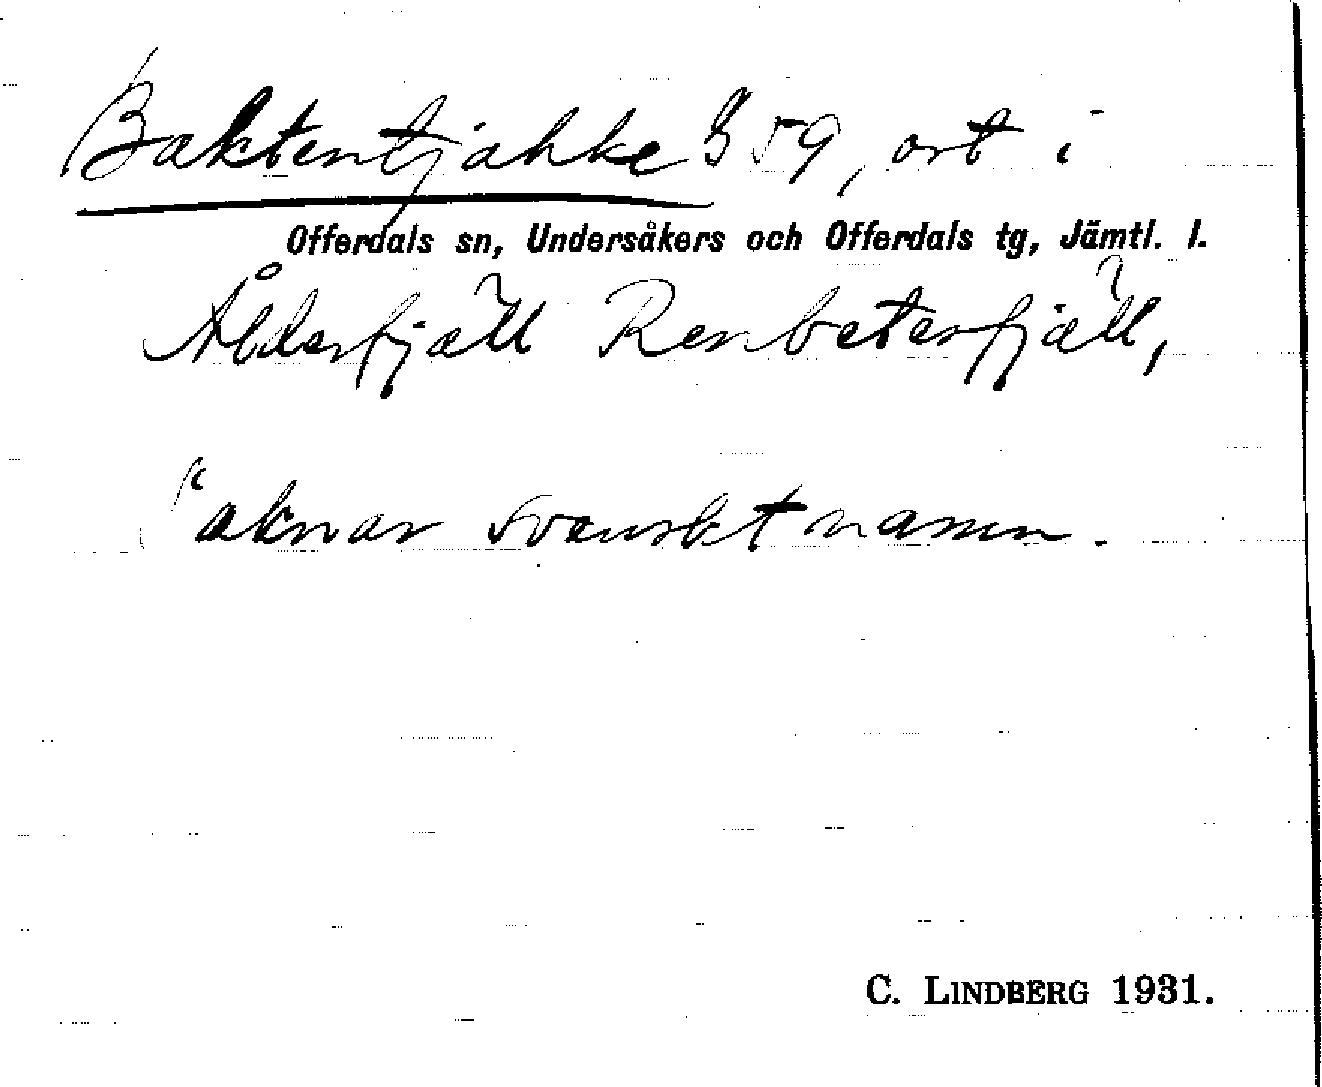 Baktentjahke § 59, ort i
Offerdals sn, Undersåkers och Offerdals tg, Jämtl. l.
Renbetesfjäll,
saknar svenskt namn.
C. LINDBERG 1931.